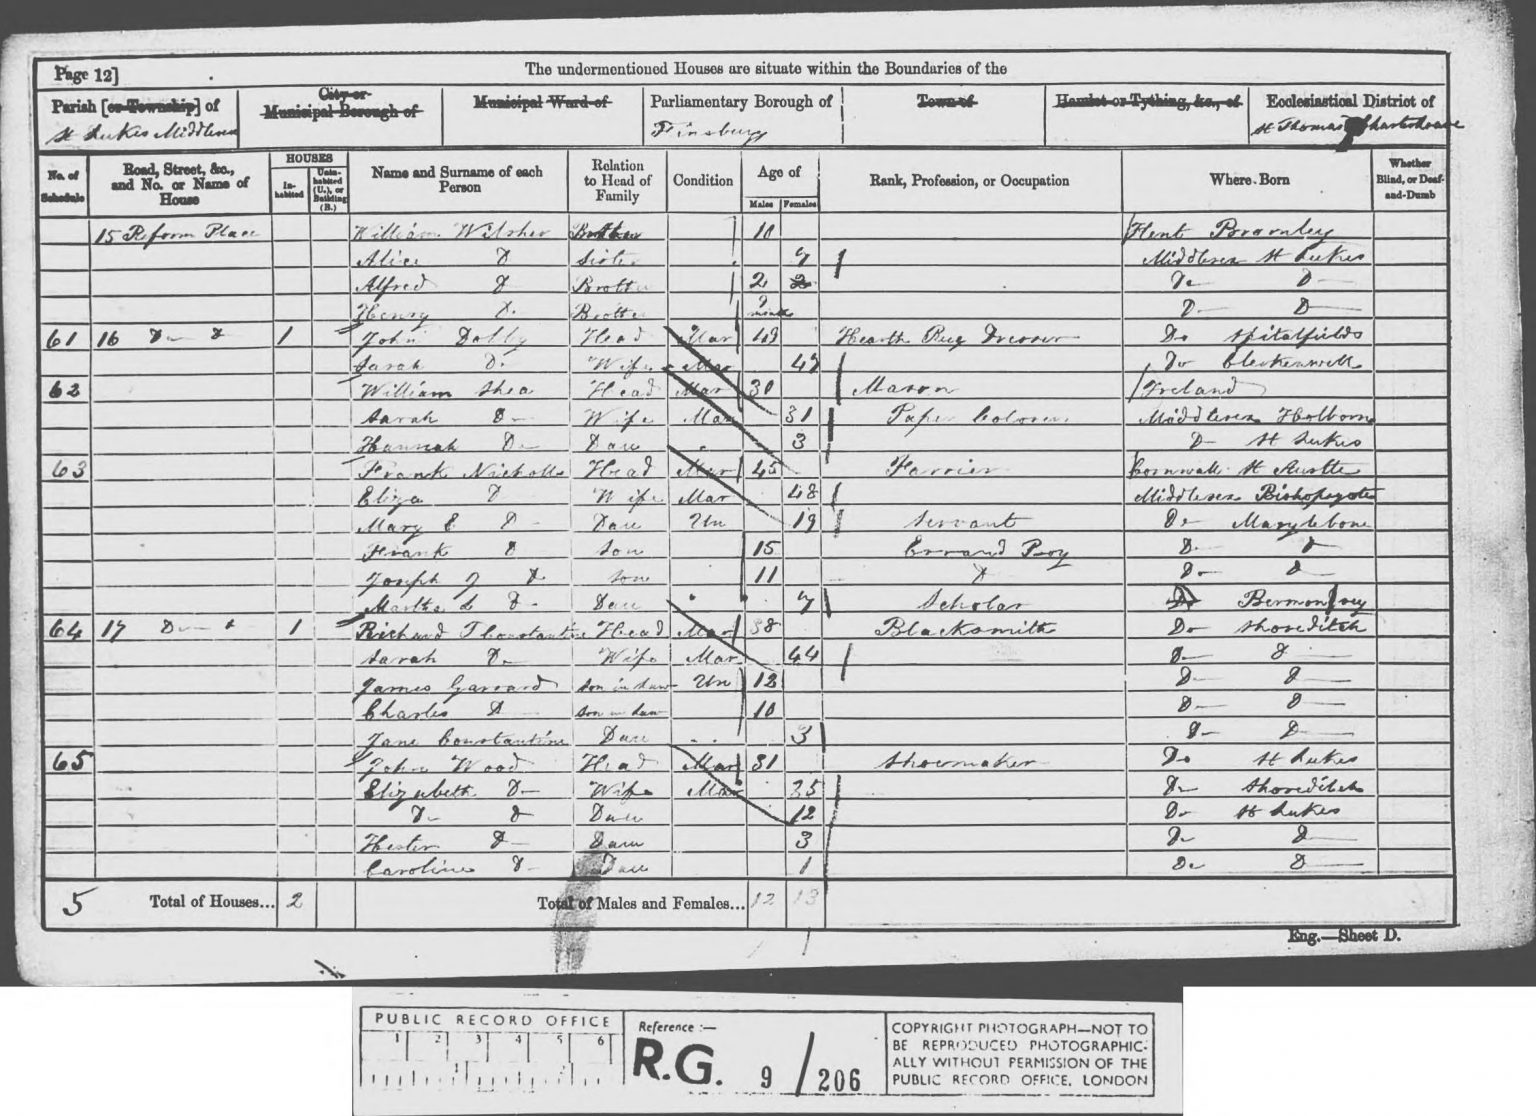 Page 12]
The undermentioned Houses are situate within the Boundaries of the
Parish [or Township] of
City or Municipal Borough of
Municipal Ward of
Parliamentary Borough of
Town of
Hamlet or Tything, &c., of
Ecclesiastical District of
St Lukes Middlesex
Finsbury
St Thomas Charterhouse
No. of Schedule
Road, Street, &c., and No. or Name of House
HOUSES
Inhabited
Uninhabited (U.), or Building (B.)
Name and Surname of each Person
Relation to Head of Family
Condition
Age of
Males
Females
Rank, Profession, or Occupation
Where Born
Whether Blind, or Deaf-and-Dumb
15 Reform Place William Wilsher Brother 10 Kent Bromley
Alice D Sister 7 Middlesex St Lukes
Alfred D Brother 2 2 Do D
Henry D Brother 9 months D D
61 16 Do D 1 John Dalby Head Mar 49 Hearth Rug Dresser Do Spitalfields
Sarah D Wife Mar 49 Do Clerkenwell
62 William Shea Head Mar 30 Mason Ireland
Sarah D Wife Mar 31 Paper Colorer Middlesex Holborn
Hannah D Daur 3 D St Lukes
63 Frank Nicholls Head Mar 45 Farrier Cornwall St Austle
Eliza D Wife Mar 48 Middlesex Bishopsgate
Mary E D Daur Un 19 Servant Do Marylebone
Frank D Son 15 Errand Boy D D
Joseph J D Son 11 D Do D
Martha L D Daur 7 Scholar Do Bermondsey
64 17 Do D 1 Richard T Constantine Head Mar 38 Blacksmith Do Shoreditch
Sarah D Wife Mar 44 D D
James Garrard Son in Law Un 12 D D
Charles D Son in Law 10 D D
Jane Constantine Daur 3 D D
65 John Wood Head Mar 31 Shoemaker Do St Lukes
Elizabeth D Wife Mar 35 Do Shoreditch
Do D Daur 12 Do St Lukes
Hester D Daur 3 Do D
Caroline D Daur 1 Do D
5 Total of Houses... 2 Total of Males and Females... 12 13
Eng.—Sheet D.
PUBLIC RECORD OFFICE
1 2 3 4 5 6
Reference :—
R.G. 9 / 206
COPYRIGHT PHOTOGRAPH—NOT TO
BE REPRODUCED PHOTOGRAPHIC-
ALLY WITHOUT PERMISSION OF THE
PUBLIC RECORD OFFICE, LONDON